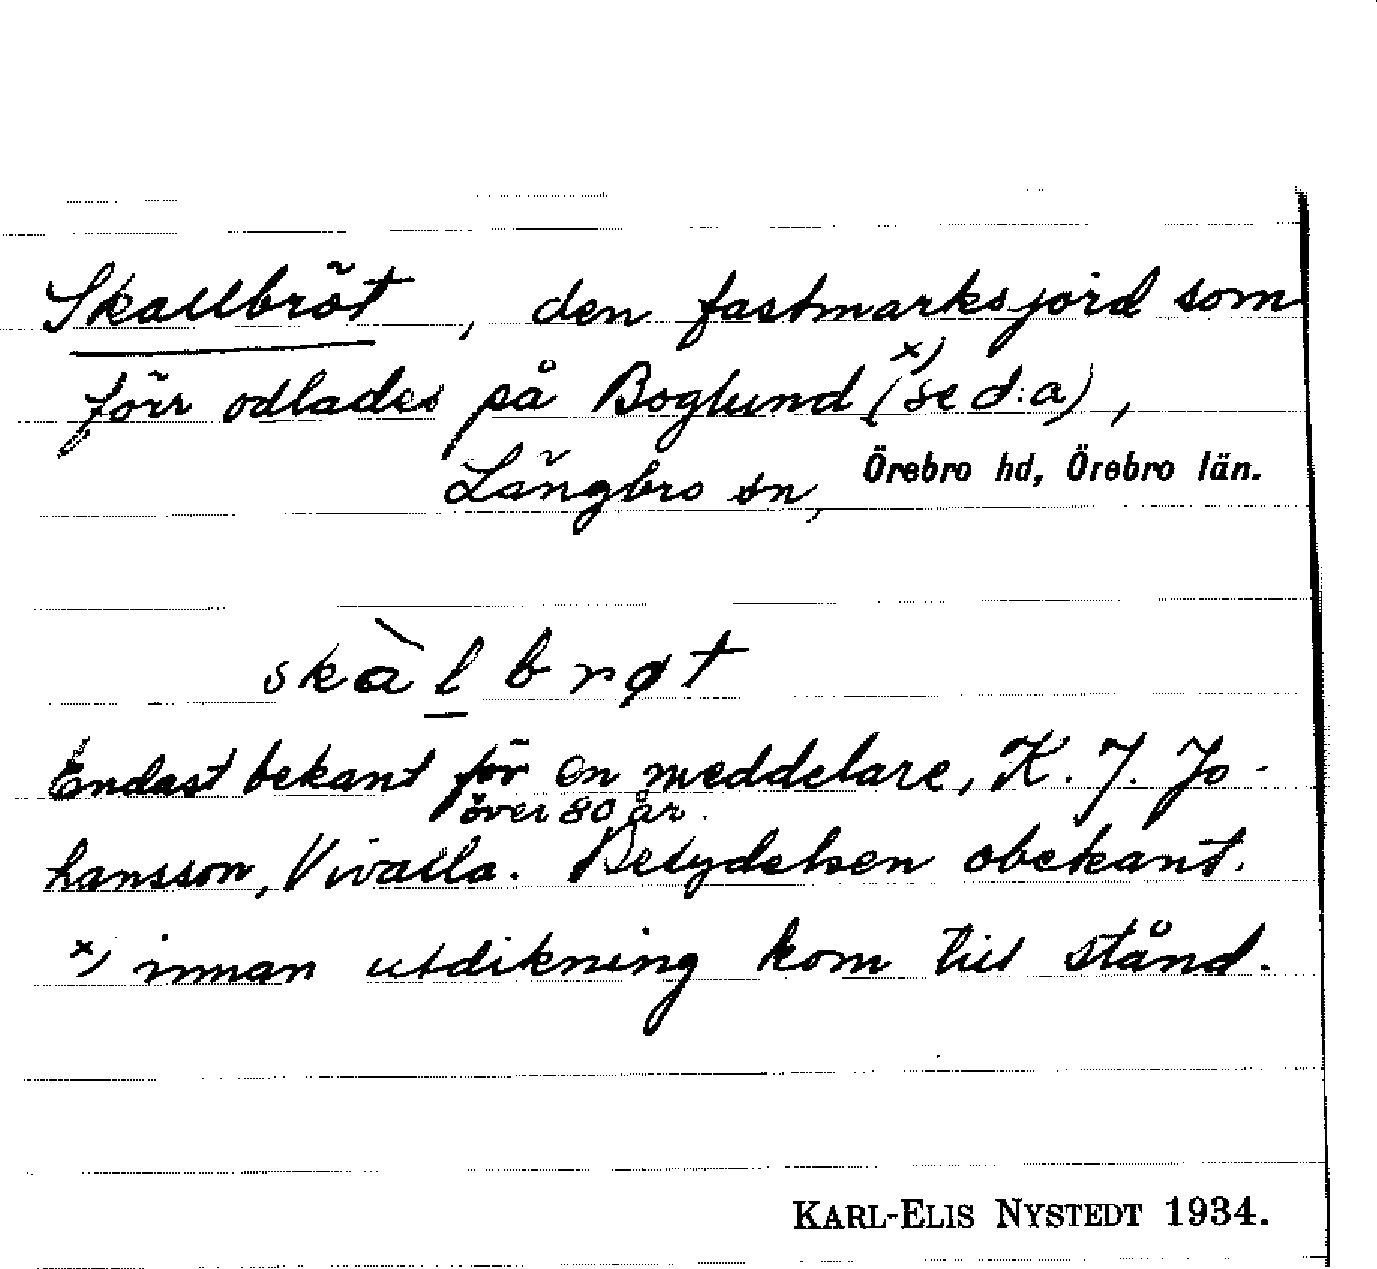 Skallbröt, den fastmarksjord som
förr odlades på Boglund x) (se d:a),
Längbro sn, Örebro hd, Örebro län.
skàl brøt
Endast bekant för en meddelare, K. J. Jo-
över 80 år.
hansson, Vivalla. Betydelsen obekant.
x) innan utdikning kom till stånd.
KARL-ELIS NYSTEDT 1934.